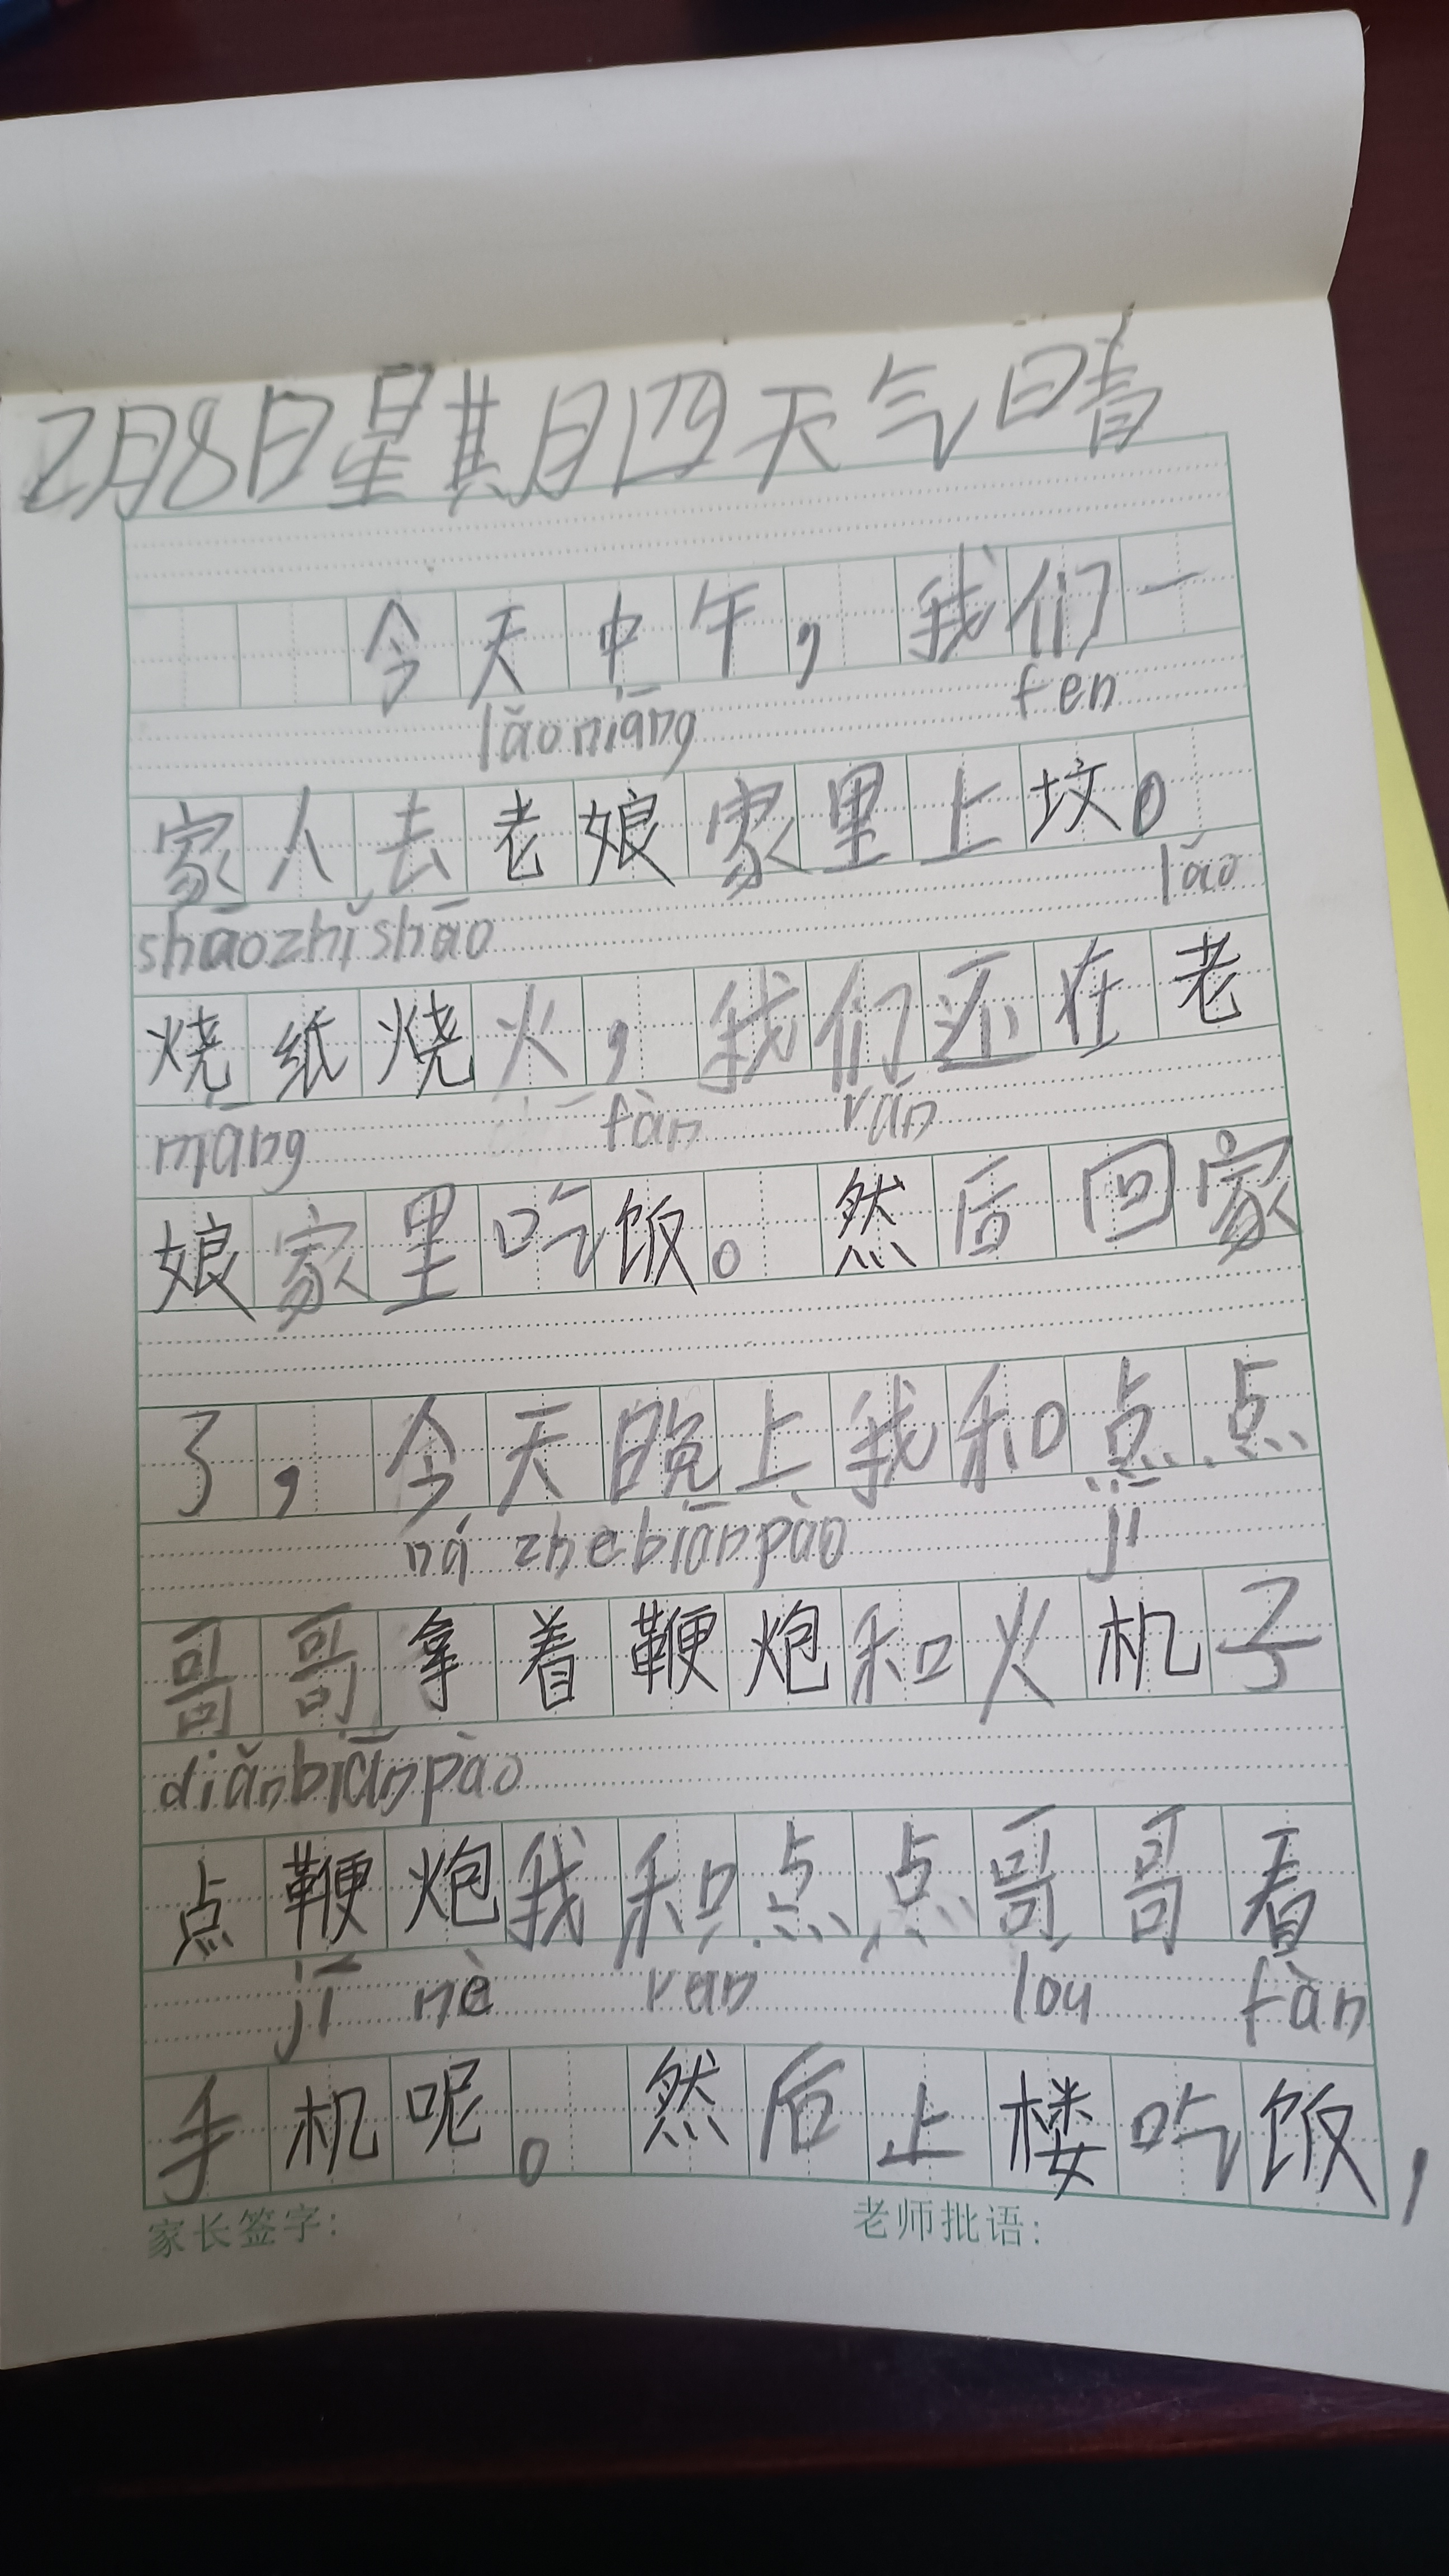 2月8日星期四天气晴
今天中午，我们一
lǎoniāng fen
家人去老娘家里上坟。
shāozhǐshāo lǎo
烧纸烧火，我们还在老
niāng fàn rán
娘家里吃饭。然后回家
了，今天晚上我和点点
ná zhebiānpào jī
哥哥拿着鞭炮和火机子
diǎnbiānpào
点鞭炮我和点点哥哥看
jī nè ran lóu fàn
手机呢。然后上楼吃饭，
家长签字： 老师批语：